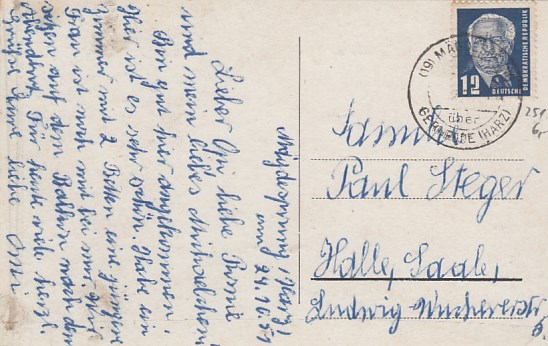 Mägdesprung, Harz
am 24.10.51
Lieber Opi liebe Püme
und mein liebes Michaelchen!
Bin gut hier angekommen,
hier ist es sehr schön. Habe ein
Zimmer mit 2 Betten eine jüngere
Frau ist noch mit bei mir. Wir
schon auf dem Balkon nach dem
Für heute viele herzl.
Grüße Eure liebe Omi.
(19) MÄ
über
GERNRODE (HARZ)
12
DEUTSCHE
DEMOKRATISCHE REPUBLIK
251
gr
Familie
Paul Steger
Halle, Saale,
Ludwig Wuchererstr
6.